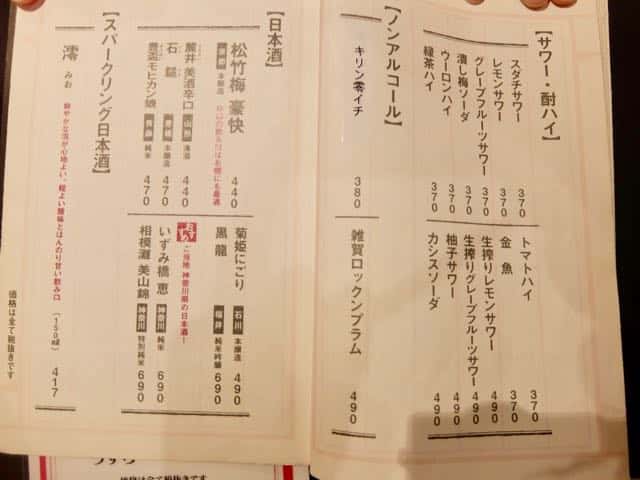 【サワー・酎ハイ】
スダチサワー 370
レモンサワー 370
グレープフルーツサワー 370
潰し梅ソーダ 370
ウーロンハイ 370
緑茶ハイ 370
トマトハイ 370
金魚 370
生搾りレモンサワー 490
生搾りグレープフルーツサワー 490
柚子サワー 490
カシスソーダ 490
【ノンアルコール】
キリン零イチ 380
雑賀ロックンプラム 490
【日本酒】
松竹梅 豪快 本醸造 440
麓井 美酒辛口 山形 本醸 440
石鎚 愛媛 本醸造 470
豊盃モヒカン娘 青森 純米 470
菊姫にごり 石川 本醸造 490
黒龍 福井 純米吟醸 690
おすすめ
ご当地 神奈川県の日本酒!
いずみ橋 恵 神奈川 純米 690
相模灘 美山錦 神奈川 特別純米 690
【スパークリング日本酒】
澪 みお
鮮やかな泡が心地よい、軽よい酸味とほんのり甘い飲み口
(150ml) 417
価格は全て税抜きです
価格は全て税抜きです